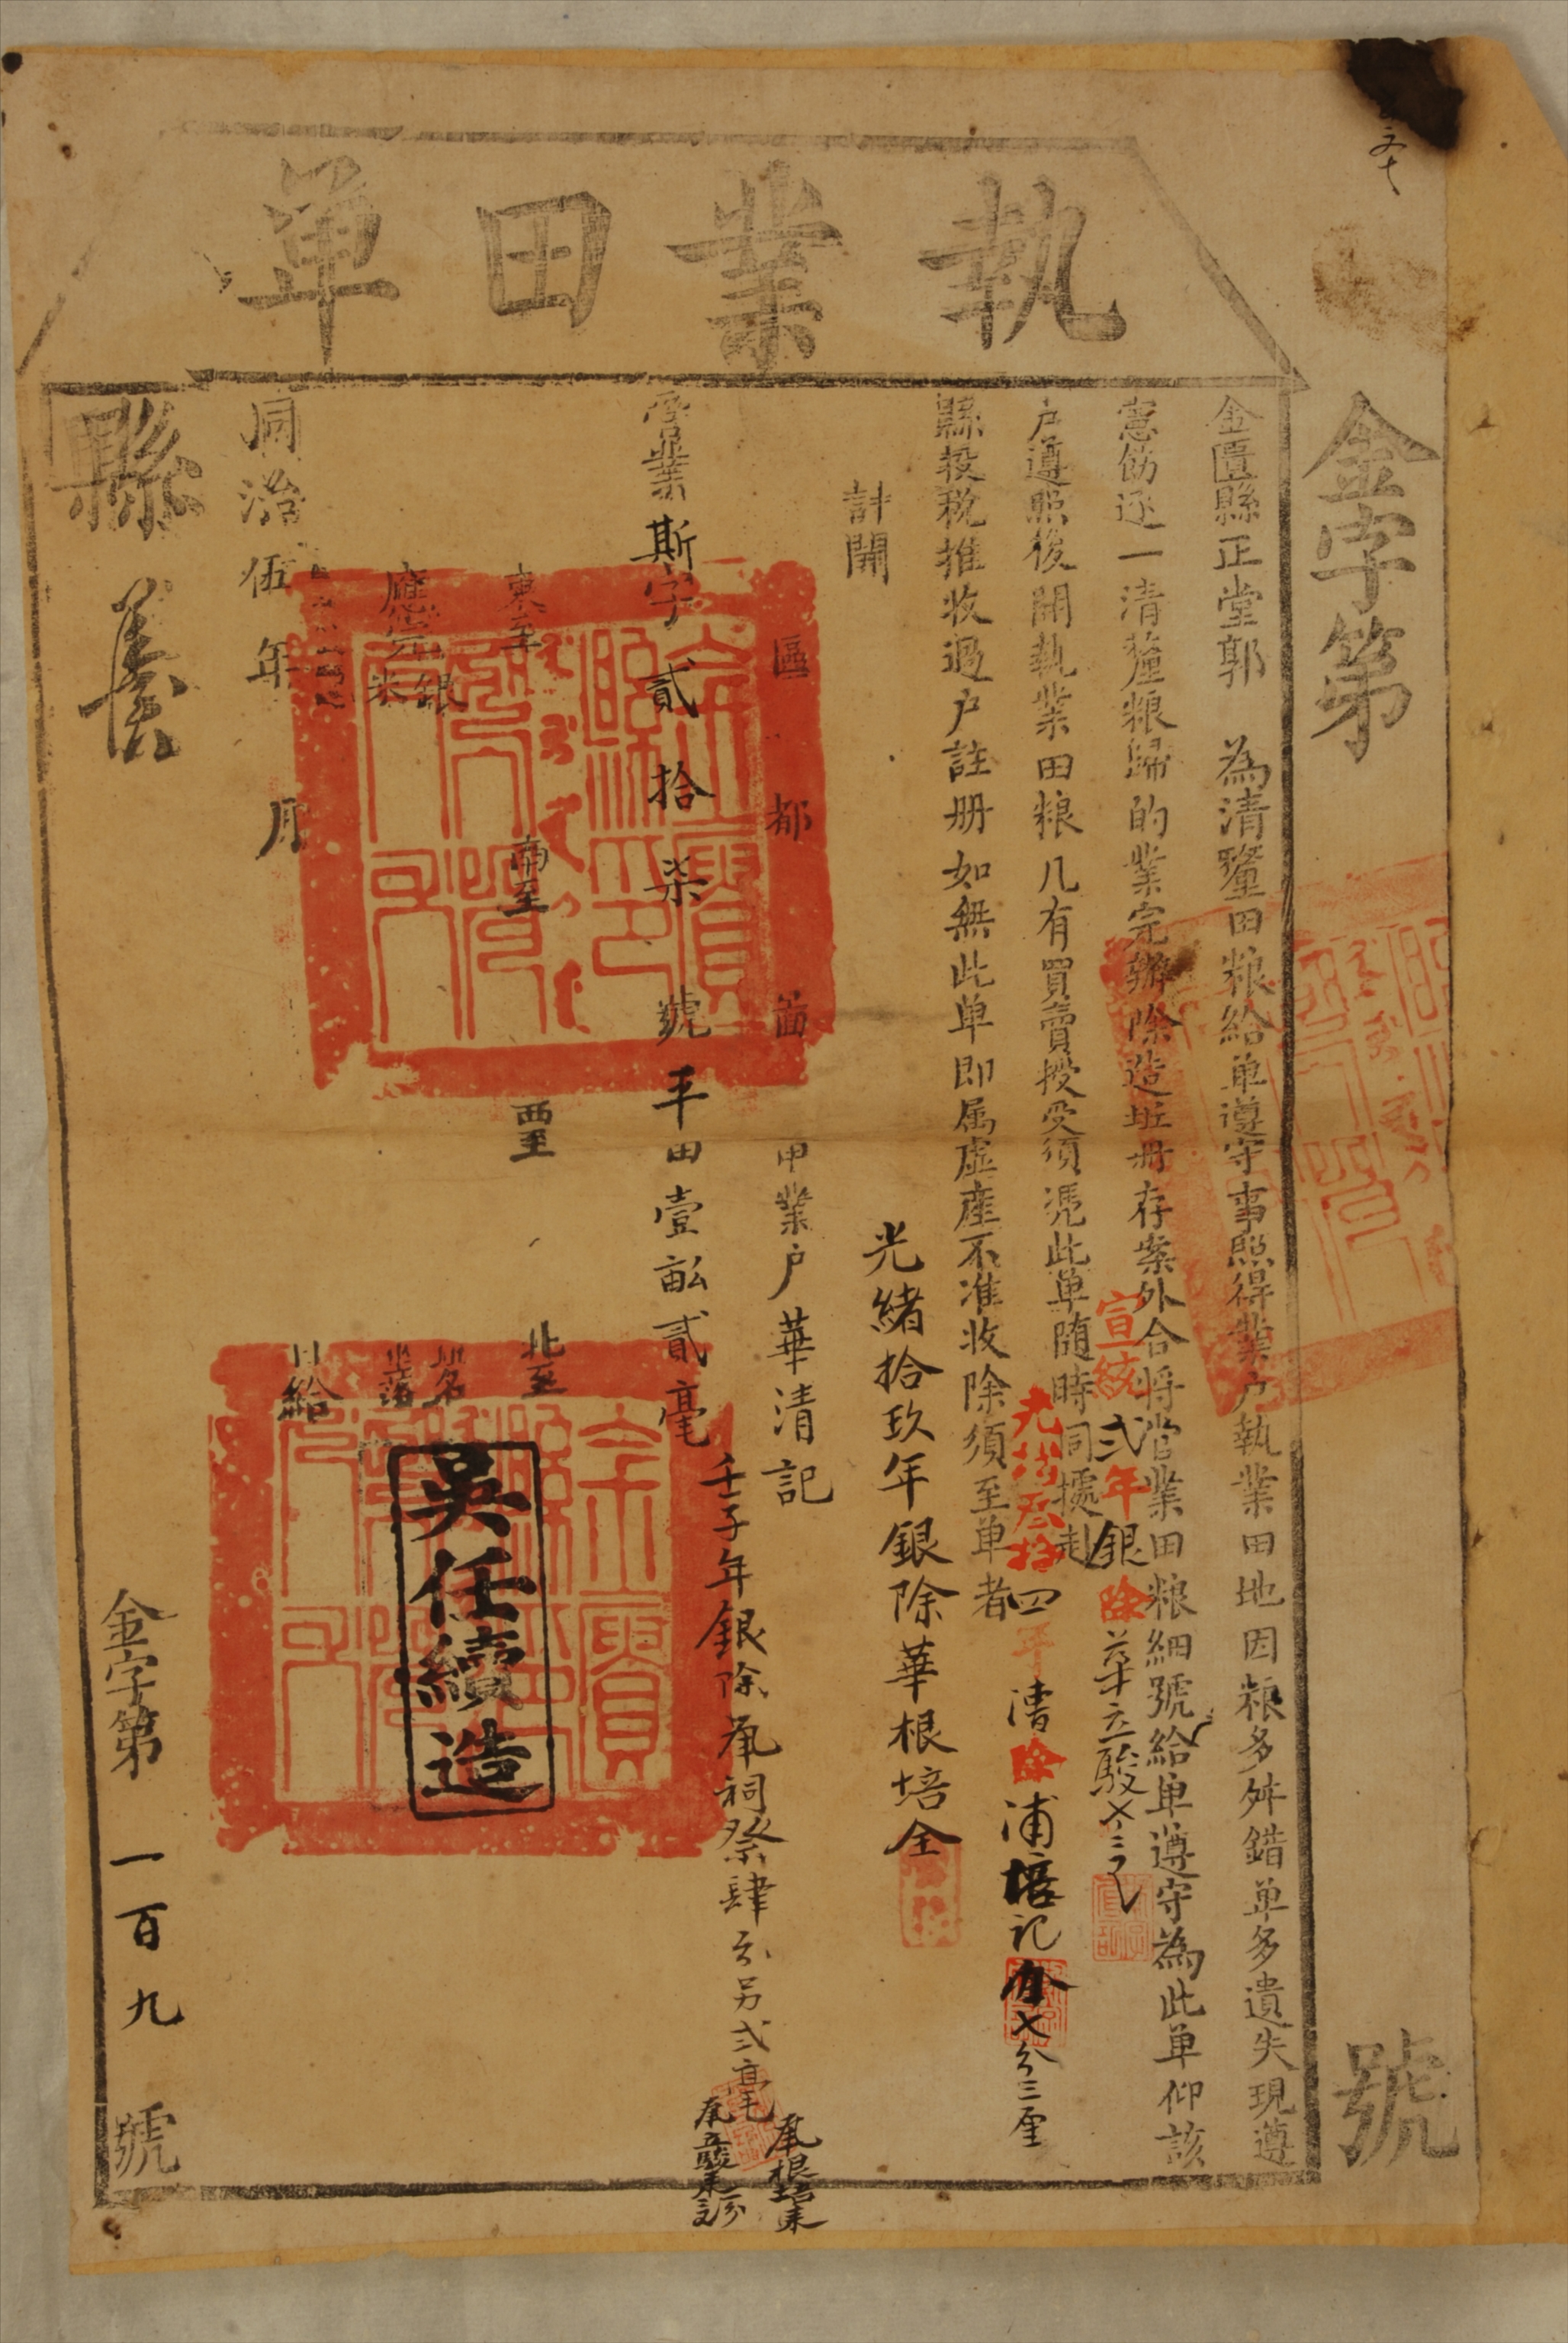 執業田單
金字第 號
金匱縣正堂郭 為清釐田粮給单遵守事照得業户執業田地因粮多舛錯单多遺失現遵
憲飭逐一清釐粮歸的業完辦除造坵册存案外合將當業田粮細號給单遵守為此单仰該
户遵照後開執業田粮凡有買賣授受須凭此单隨時同據赴
縣投税推收過户註册如無此单即属虚產不准收除須至单者
宣統弍年銀除
光緒叁拾四年漕除浦培记
計開
光緒拾玖年銀除華根培全
區 都 啚 甲業户華清記
壬子年銀除 祠祭肆分另弍毫
斯字貳拾柒號平田壹畝貳毫
東至 南至 西至 北至
應完銀米
吳任續造
同治伍年 月 日給
縣
金字第一百九號